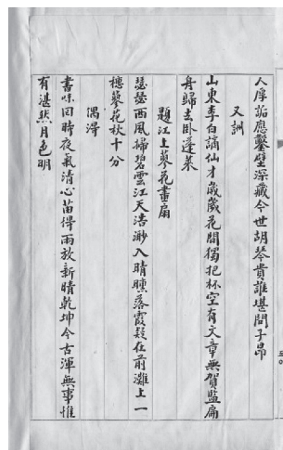 人厚詬應鑿壁深藏今世胡琴貴誰堪問子昂
又詶
山東李白謫仙才歲歲花間獨把杯空有文章無賀監扁
舟歸去卧蓬萊
題江上蓼花畫扇
瑟瑟西風掃碧雲江天浩渺入晴曛落霞疑在前灘上一
穗蓼花秋十分
偶得
書味回時夜氣清心苗得雨放新晴乾坤今古渾無事惟
有湛然月色明